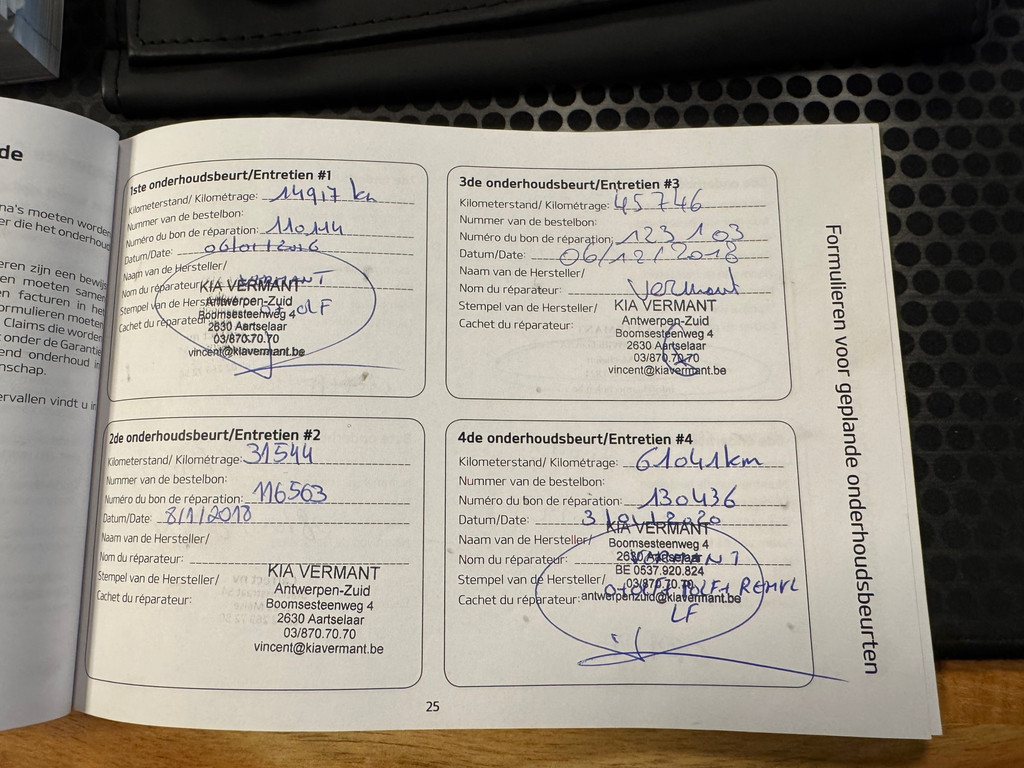 de
na's moeten worden
er die het onderhoud
eren zijn een bewijs
en moeten samen
en facturen in het
ormulieren moeten
Claims die worden
onder de Garantie
end onderhoud in
nschap.
ervallen vindt u in
1ste onderhoudsbeurt/Entretien #1
Kilometerstand/ Kilométrage: 14917 km
Nummer van de bestelbon:
Numéro du bon de réparation: 110114
Datum/Date: 06/01/2016
Naam van de Hersteller/
Nom du réparateur: VERMANT
KIA VERMANT
Stempel van de Hersteller/
Antwerpen-Zuid
Boomsesteenweg 4
Cachet du réparateur:
2630 Aartselaar
03/870.70.70
vincent@kiavermant.be
2de onderhoudsbeurt/Entretien #2
Kilometerstand/ Kilométrage: 31544
Nummer van de bestelbon:
Numéro du bon de réparation: 116563
Datum/Date: 8/1/2018
Naam van de Hersteller/
Nom du réparateur:
Stempel van de Hersteller/
Cachet du réparateur:
KIA VERMANT
Antwerpen-Zuid
Boomsesteenweg 4
2630 Aartselaar
03/870.70.70
vincent@kiavermant.be
3de onderhoudsbeurt/Entretien #3
Kilometerstand/ Kilométrage: 45746
Nummer van de bestelbon:
Numéro du bon de réparation: 123103
Datum/Date: 06/12/2018
Naam van de Hersteller/
Nom du réparateur: Vermant
Stempel van de Hersteller/
Cachet du réparateur:
KIA VERMANT
Antwerpen-Zuid
Boomsesteenweg 4
2630 Aartselaar
03/870.70.70
vincent@kiavermant.be
4de onderhoudsbeurt/Entretien #4
Kilometerstand/ Kilométrage: 61041km
Nummer van de bestelbon:
Numéro du bon de réparation: 130436
Datum/Date: 3/01/2020
Naam van de Hersteller/
Nom du réparateur: VERMANT
Stempel van de Hersteller/
Cachet du réparateur:
KIA VERMANT
Boomsesteenweg 4
2630 Aartselaar
BE 0537.920.824
03/870.70.70
antwerpenzuid@kiavermant.be
LF
25
Formulieren voor geplande onderhoudsbeurten